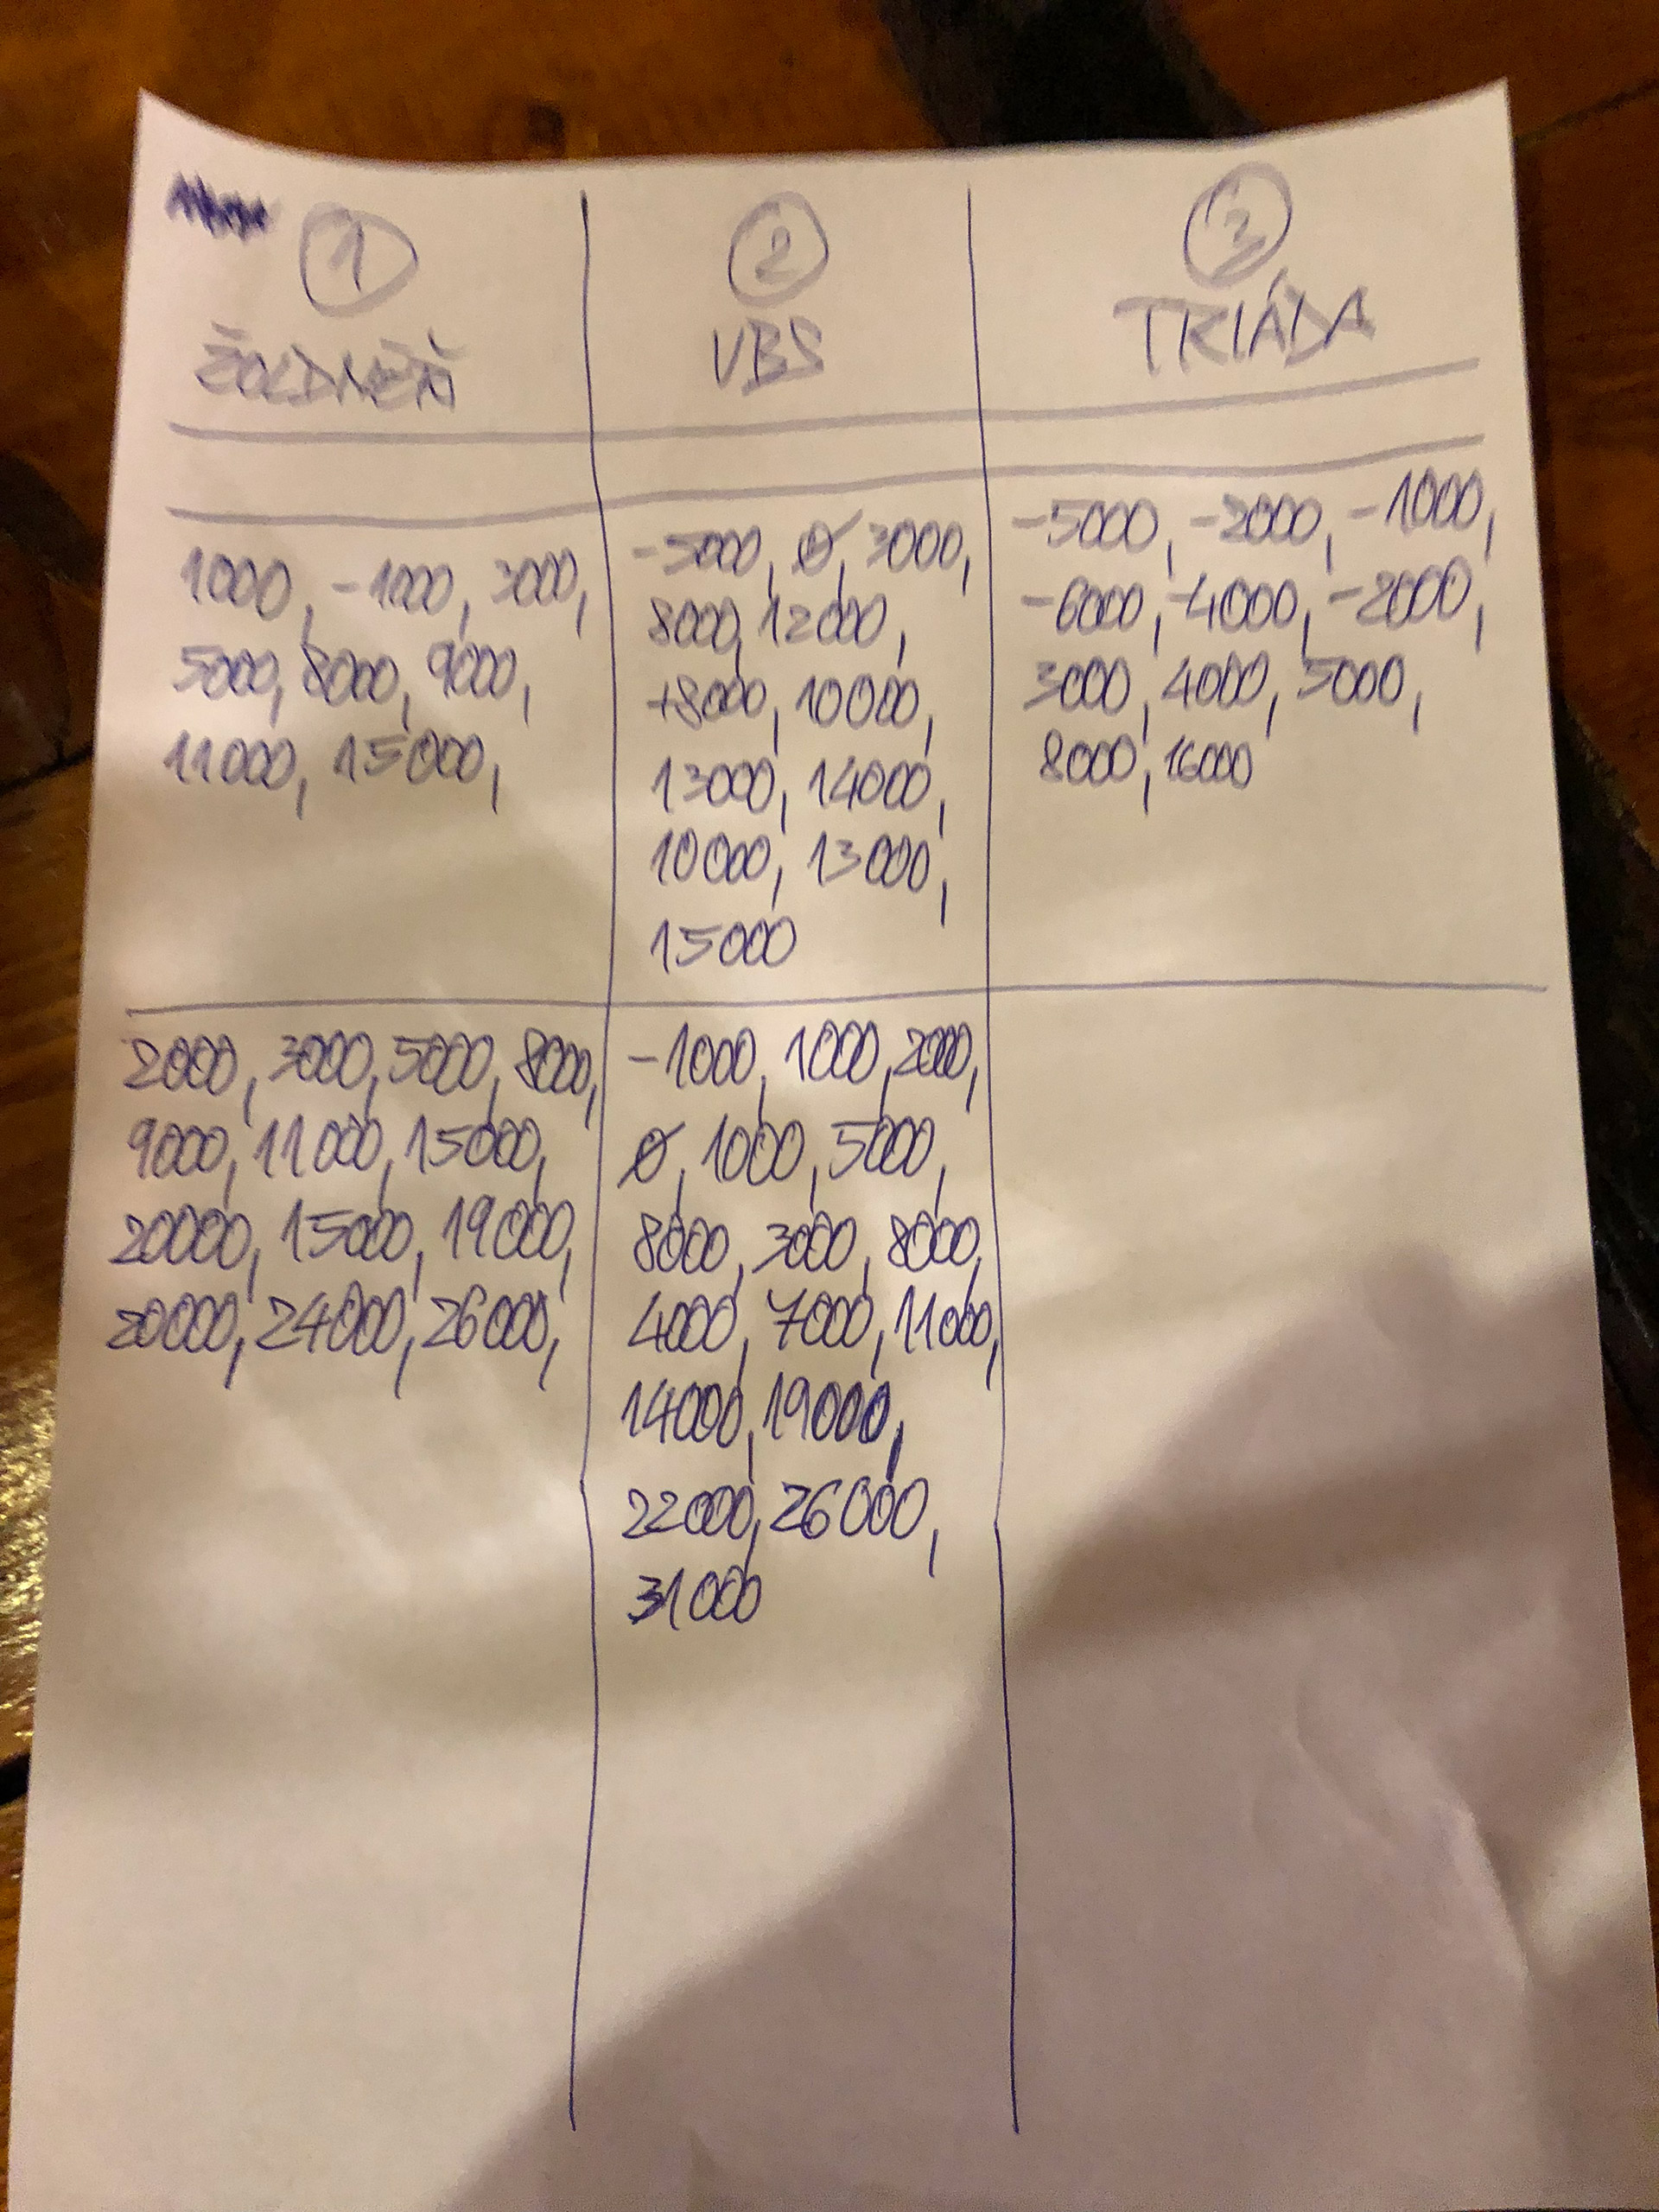 1
ŽOLDNEŘI
1000, -1000, 3000,
5000, 8000, 9000,
11000, 15000,
2000, 3000, 5000, 8000,
9000, 11000, 15000,
20000, 15000, 19000,
20000, 24000, 26000,
2
VBS
-5000, Ø, 3000,
8000, 12000,
+8000, 10000,
13000, 14000,
10000, 13000,
15000
-1000, 1000, 2000,
Ø, 1000, 5000,
8000, 3000, 8000,
4000, 7000, 11000,
14000, 19000,
22000, 26000,
31000
3
TRIÁDA
-5000, -2000, -1000,
-6000, -4000, -2000,
3000, 4000, 5000,
8000, 16000